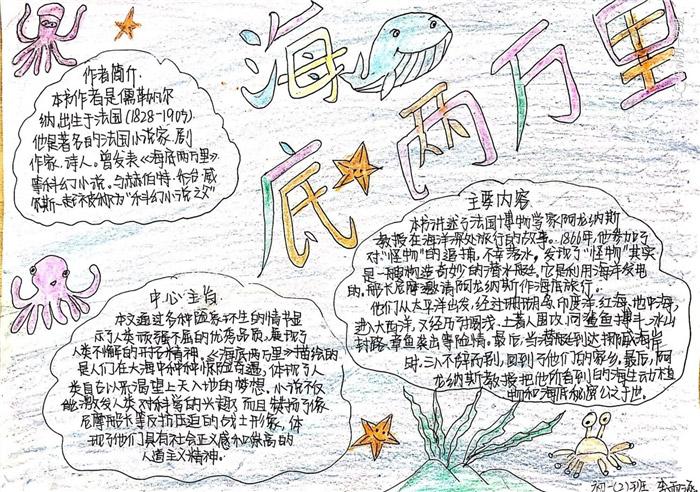 海底两万里
作者简介.
本书作者是儒勒·凡尔
纳,出生于法国(1828-1905)
他是著名的法国小说家.剧
作家.诗人。曾发表《海底两万里》
等科幻小说。与赫伯特·乔治·威
尔斯一起被称为“科幻小说之父”
主要内容
本书讲述了法国博物学家阿龙纳斯
教授在海洋深处旅行的故事。1866年,他参加了
对“怪物”的追捕,不幸落水,发现了“怪物”其实
是一艘构造奇妙的潜水艇。它是利用海洋发电
的。船长尼摩邀请阿龙纳斯作海底旅行。
他们从太平洋出发,经过珊瑚岛.印度洋.红海.地中海,
进入大西洋,
土著人围攻.同鲨鱼搏斗.冰山
封路.章鱼袭击等险情。最后,当潜艇到达挪威海岸
时.三人不辞而别,回到了他们的家乡。最后,阿
龙纳斯教授把他所看到的海生动植
物和海底秘密公之于世.
中心主旨
本文通过多种险象环生的情节显
示了人类顽强不屈的优秀品质,展现了
人类不懈的开拓精神。《海底两万里》描绘的
是人们在大海中种种惊险奇遇,体现了人
类自古以来渴望上天入地的梦想,小说不仅
能激发人类对科学的兴趣,而且赞扬了像
尼摩船长等反抗压迫的战士形象,体
现了他们具有社会正义感和崇高的
人道主义精神。
初一(2)班